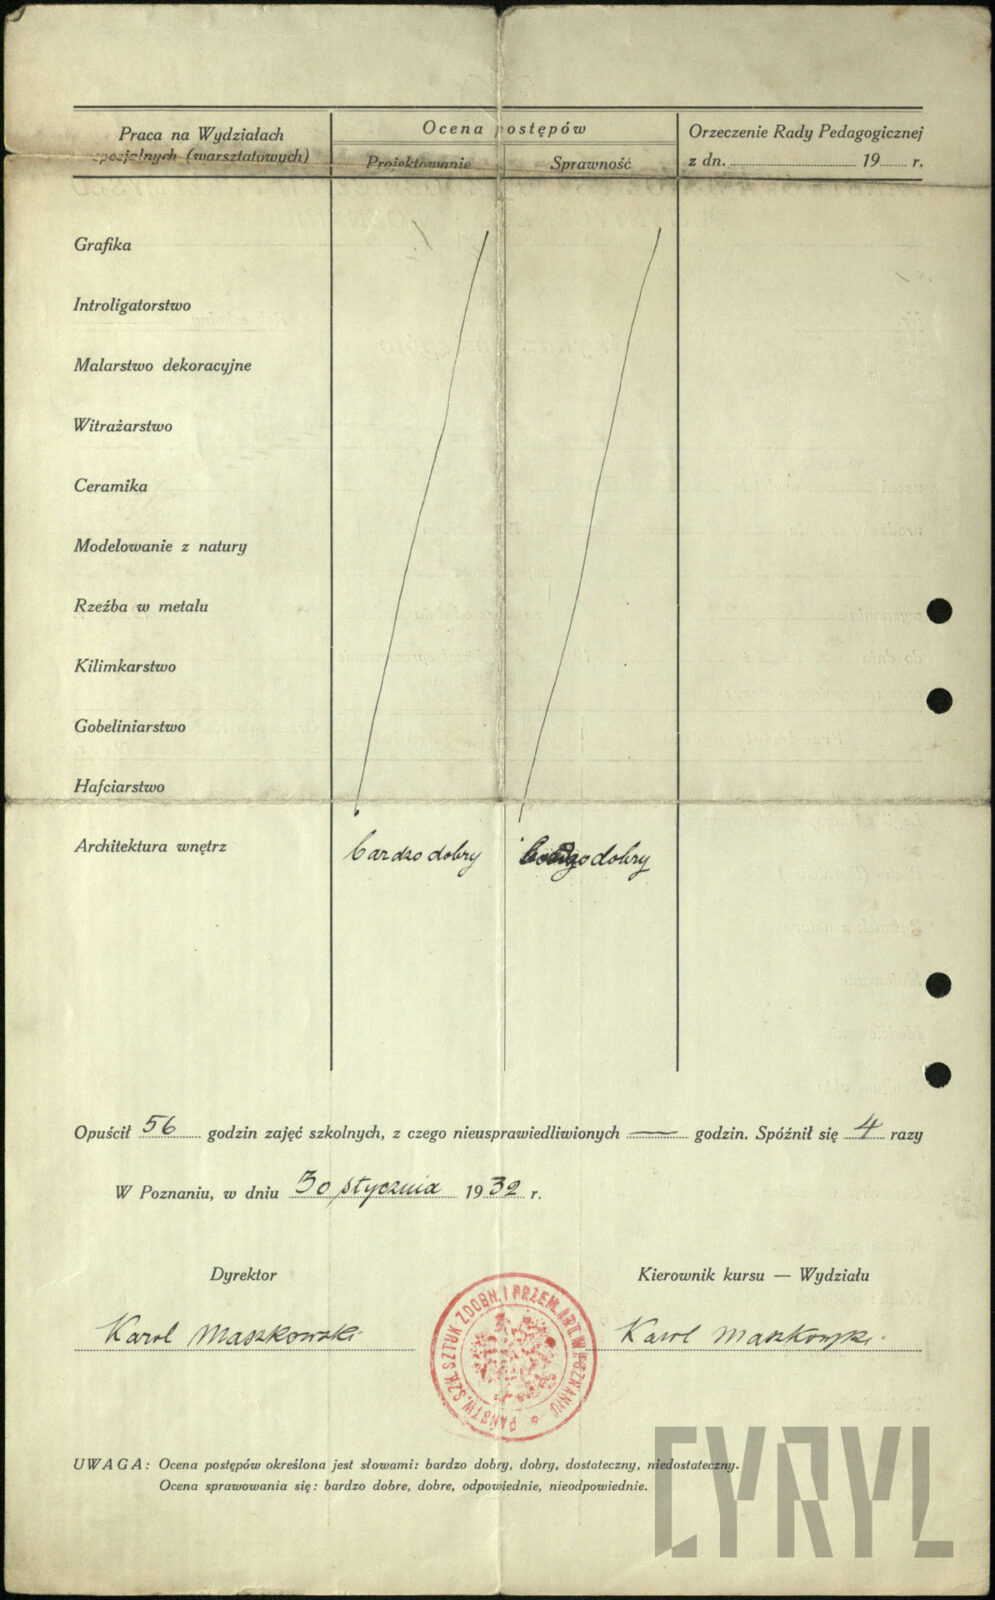 Praca na Wydziałach
specjalnych (warsztatowych)
Ocena postępów
Projektowanie
Sprawność
Orzeczenie Rady Pedagogicznej
z dn. 19 r.
Grafika
Introligatorstwo
Malarstwo dekoracyjne
Witrażarstwo
Ceramika
Modelowanie z natury
Rzeźba w metalu
Kilimkarstwo
Gobeliniarstwo
Hafciarstwo
Architektura wnętrz bardzo dobry bardzo dobry
Opuścił 56 godzin zajęć szkolnych, z czego nieusprawiedliwionych — godzin. Spóźnił się 4 razy
W Poznaniu, w dniu 30 stycznia 1932 r.
Dyrektor
Kierownik kursu — Wydziału
Karol Maszkowski
Karol Maszkowski
PAŃSTW. SZK. SZTUK ZDOBN. I PRZEM. ART. W POZNANIU
UWAGA: Ocena postępów określona jest słowami: bardzo dobry, dobry, dostateczny, niedostateczny.
Ocena sprawowania się: bardzo dobre, dobre, odpowiednie, nieodpowiednie.
CYRYL